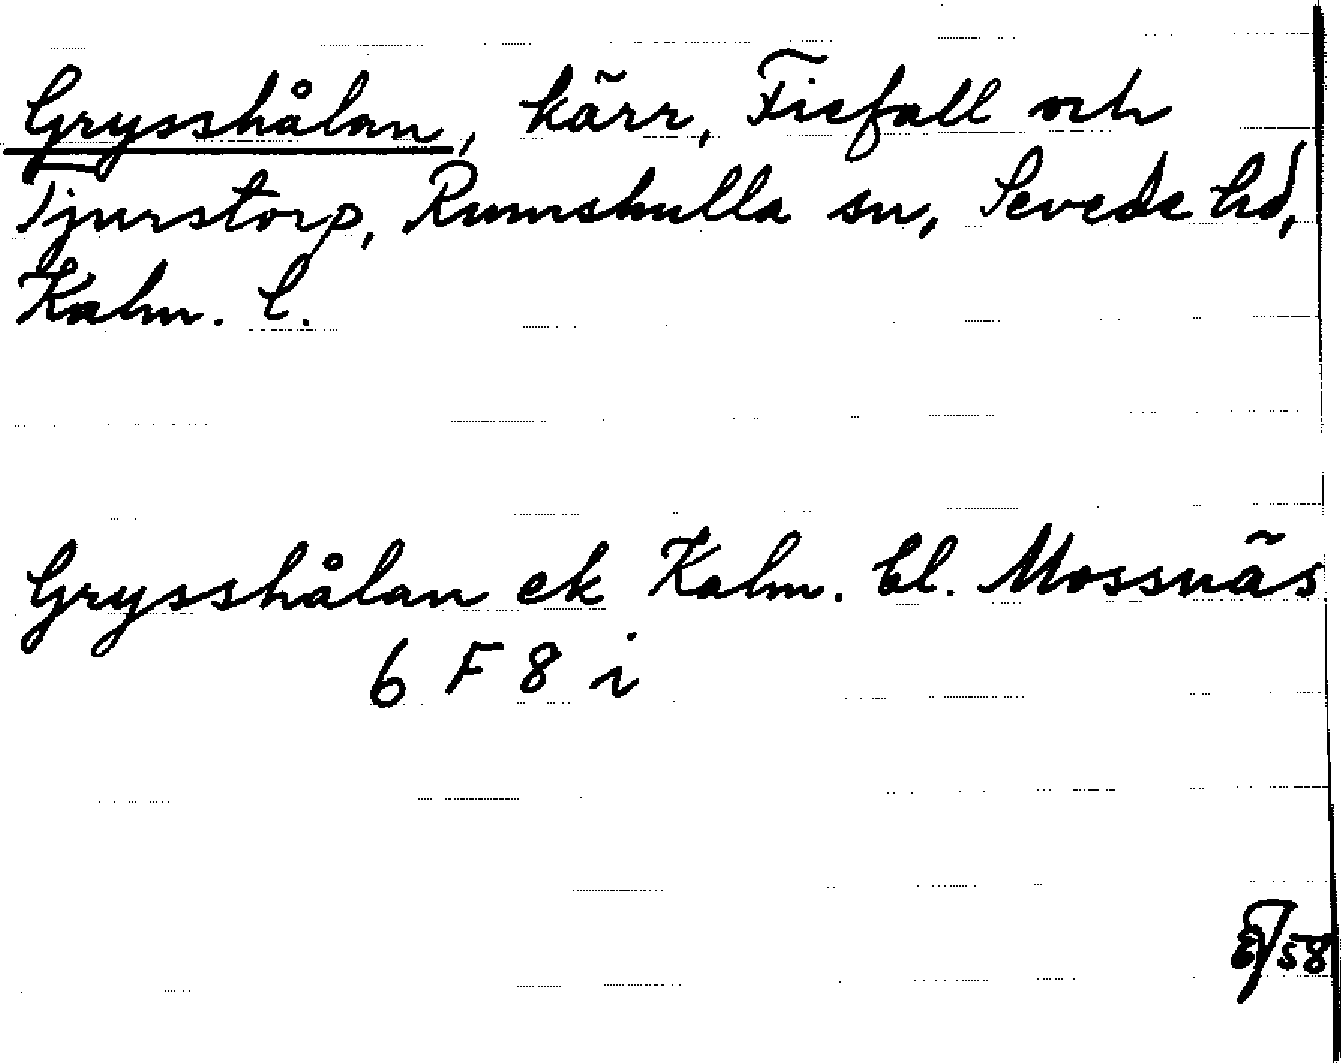 Grysshålan, kärr, Ficfall och
Tjurstorp, Rumskulla sn, Sevede hd,
Kalm. l.
Grysshålan ek Kalm. bl. Mossnäs
6 F 8 i
58